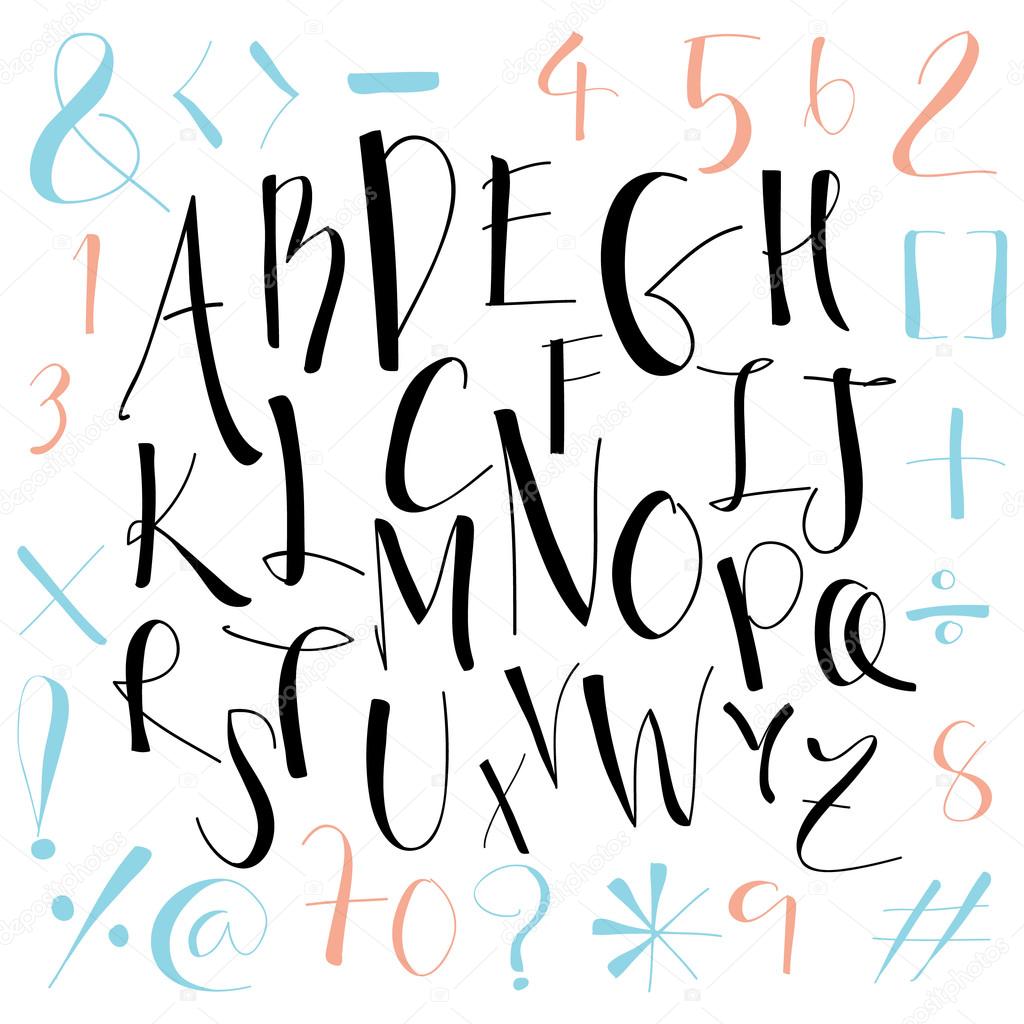 & < > - 4 5 6 2
A B D E G H
1 [ ]
3 K L C F I J +
× M N O P Q ÷
R S T U X V W Y Z
! 8
% @ 7 0 ? * 9 #